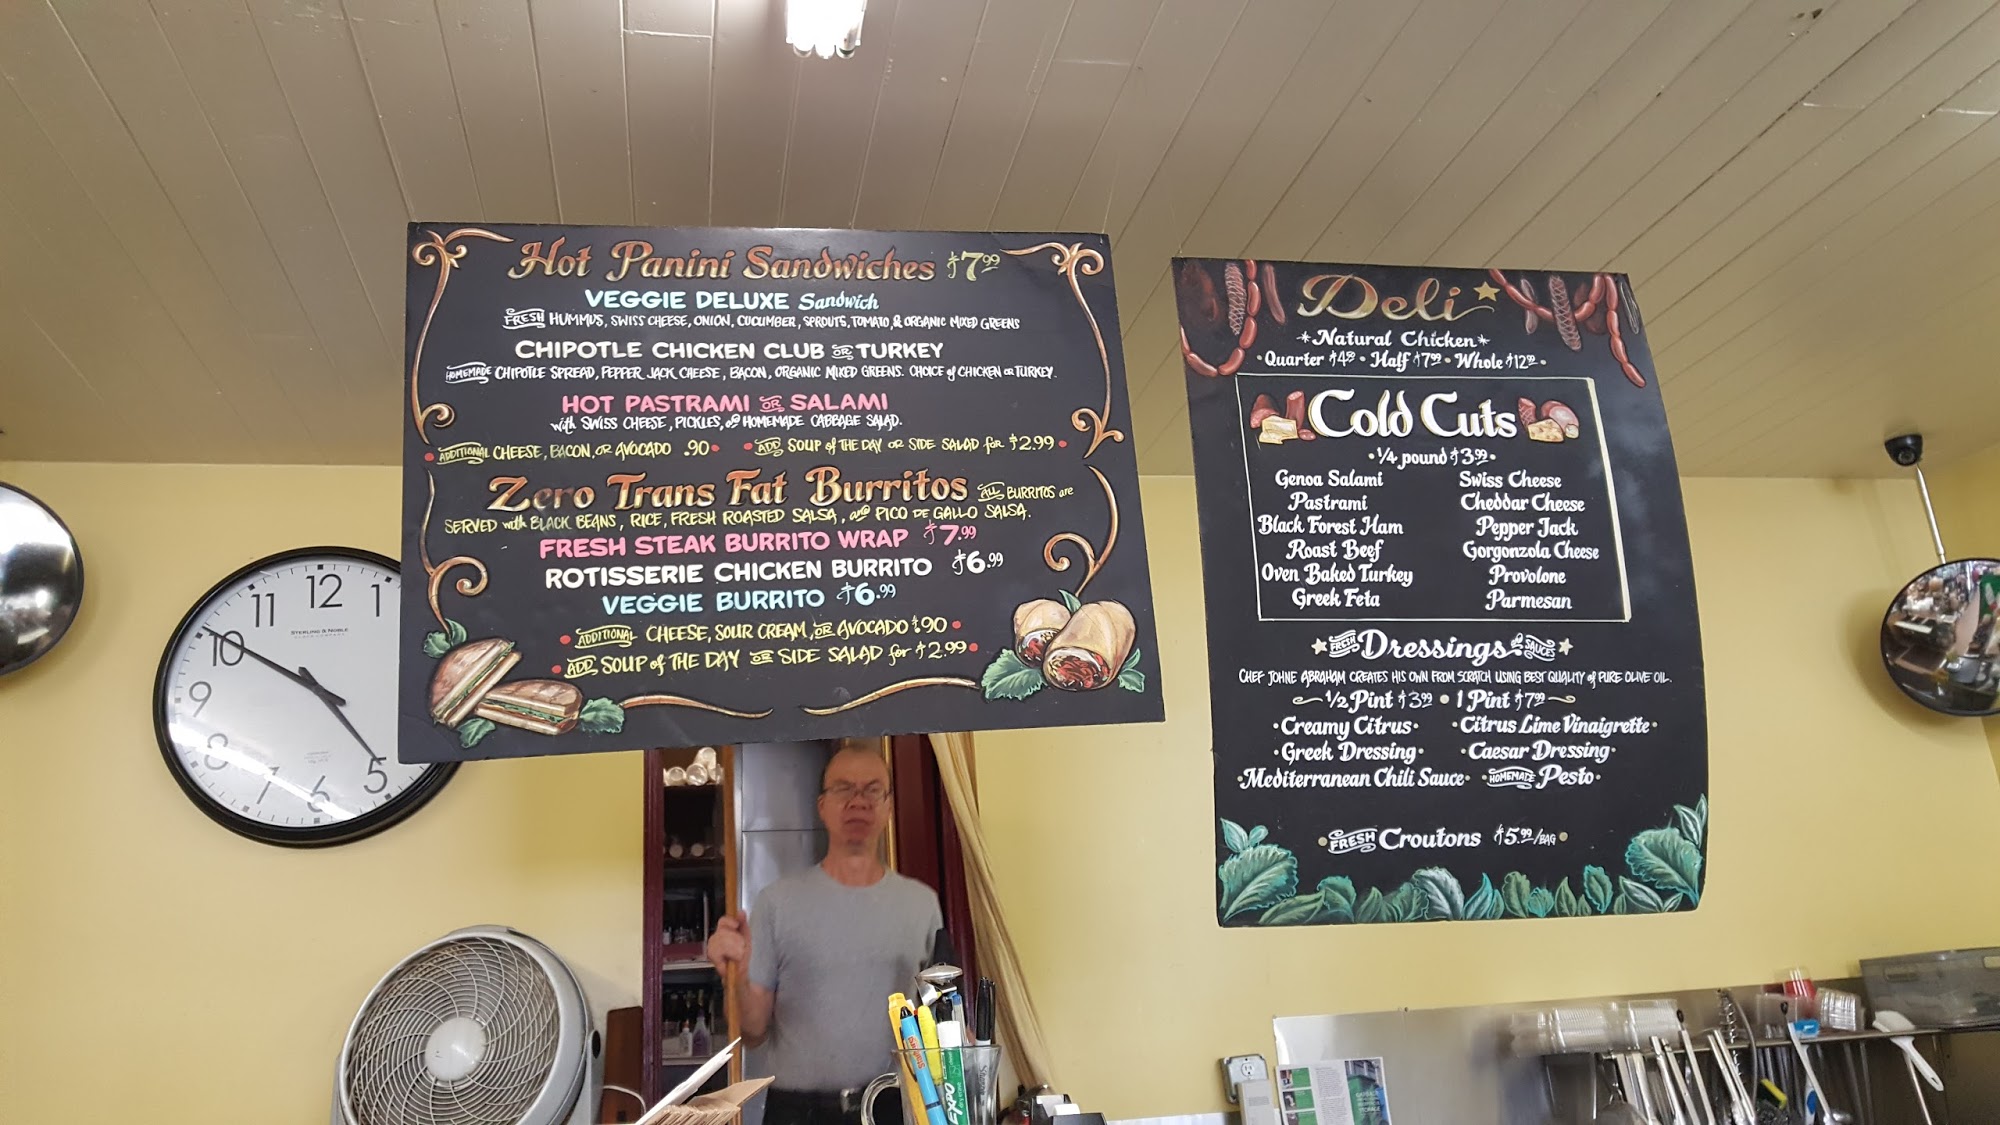 Hot Panini Sandwiches $7.99
VEGGIE DELUXE Sandwich
FRESH HUMMUS, SWISS CHEESE, ONION, CUCUMBER, SPROUTS, TOMATO, & ORGANIC MIXED GREENS
CHIPOTLE CHICKEN CLUB OR TURKEY
HOMEMADE CHIPOTLE SPREAD, PEPPER JACK CHEESE, BACON, ORGANIC MIXED GREENS. CHOICE of CHICKEN OR TURKEY.
HOT PASTRAMI OR SALAMI
with SWISS CHEESE, PICKLES, and HOMEMADE CABBAGE SALAD.
• ADDITIONAL CHEESE, BACON, OR AVOCADO .90 • • ADD SOUP of THE DAY OR SIDE SALAD for $2.99 •
Zero Trans Fat Burritos ALL BURRITOS are
SERVED with BLACK BEANS, RICE, FRESH ROASTED SALSA, and PICO DE GALLO SALSA.
FRESH STEAK BURRITO WRAP $7.99
ROTISSERIE CHICKEN BURRITO $6.99
VEGGIE BURRITO $6.99
• ADDITIONAL CHEESE, SOUR CREAM, OR AVOCADO $.90 •
• ADD SOUP of THE DAY OR SIDE SALAD for $2.99 •
Deli
*Natural Chicken*
• Quarter $4.99 • Half $7.99 • Whole $12.99 •
Cold Cuts
• 1/4 pound $3.99 •
Genoa Salami Swiss Cheese
Pastrami Cheddar Cheese
Black Forest Ham Pepper Jack
Roast Beef Gorgonzola Cheese
Oven Baked Turkey Provolone
Greek Feta Parmesan
FRESH Dressings and SAUCES
CHEF JOHNE ABRAHAM CREATES HIS OWN FROM SCRATCH USING BEST QUALITY of PURE OLIVE OIL.
1/2 Pint $3.99 • 1 Pint $7.99
• Creamy Citrus • • Citrus Lime Vinaigrette •
• Greek Dressing • • Caesar Dressing •
• Mediterranean Chili Sauce • • HOMEMADE Pesto •
• FRESH Croutons $5.99/BAG •
11 12 1
10
9
8
7 6 5
STERLING & NOBLE
EXPO
Sharpie